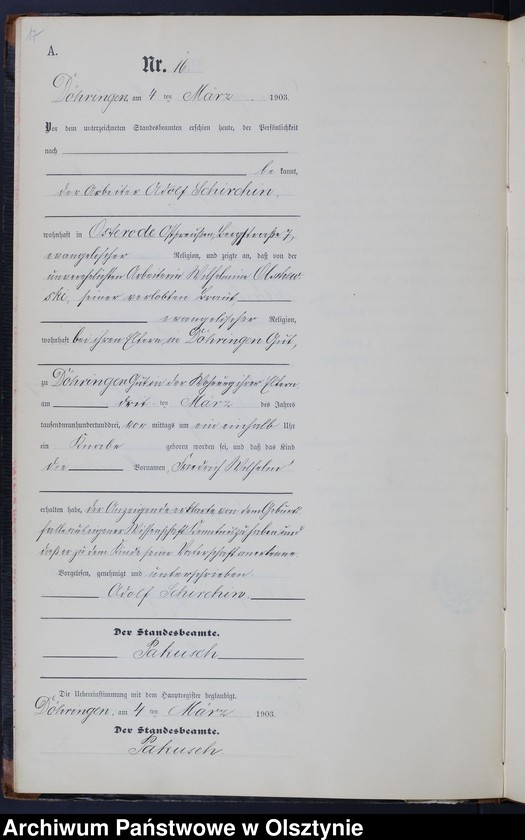 17
A.
Nr. 16
Döhringen, am 4 ten März 1903.
Vor dem unterzeichneten Standesbeamten erschien heute, der Persönlichkeit
nach
be kannt,
der Arbeiter Adolf Schirchin,
wohnhaft in Osterode Ostpreußen, Bergstraße 7,
evangelischer Religion, und zeigte an, daß von der
unverehelichten Arbeiterin Wilhelmine Olschew
ski, seiner verlobten Braut
evangelischer Religion,
wohnhaft bei ihren Eltern, in Döhringen Gut,
zu Döhringen Gut in der Wohnung ihrer Eltern
am drit ten März des Jahres
tausendneunhundertunddrei, vor mittags um ein einhalb Uhr
ein Knabe geboren worden sei, und daß das Kind
die Vornamen „Friedrich Wilhelm"
erhalten habe, der Anzeigende erklärte von dem Geburts
falle aus eigener Wissenschaft Kenntniß zu haben und
daß er zu dem Kinde seine Vaterschaft anerkenne.
Vorgelesen, genehmigt und unterschrieben
Adolf Schirchin.
Der Standesbeamte.
Pakusch
Die Uebereinstimmung mit dem Hauptregister beglaubigt.
Döhringen, am 4 ten März 1903.
Der Standesbeamte.
Pakusch
Archiwum Państwowe w Olsztynie